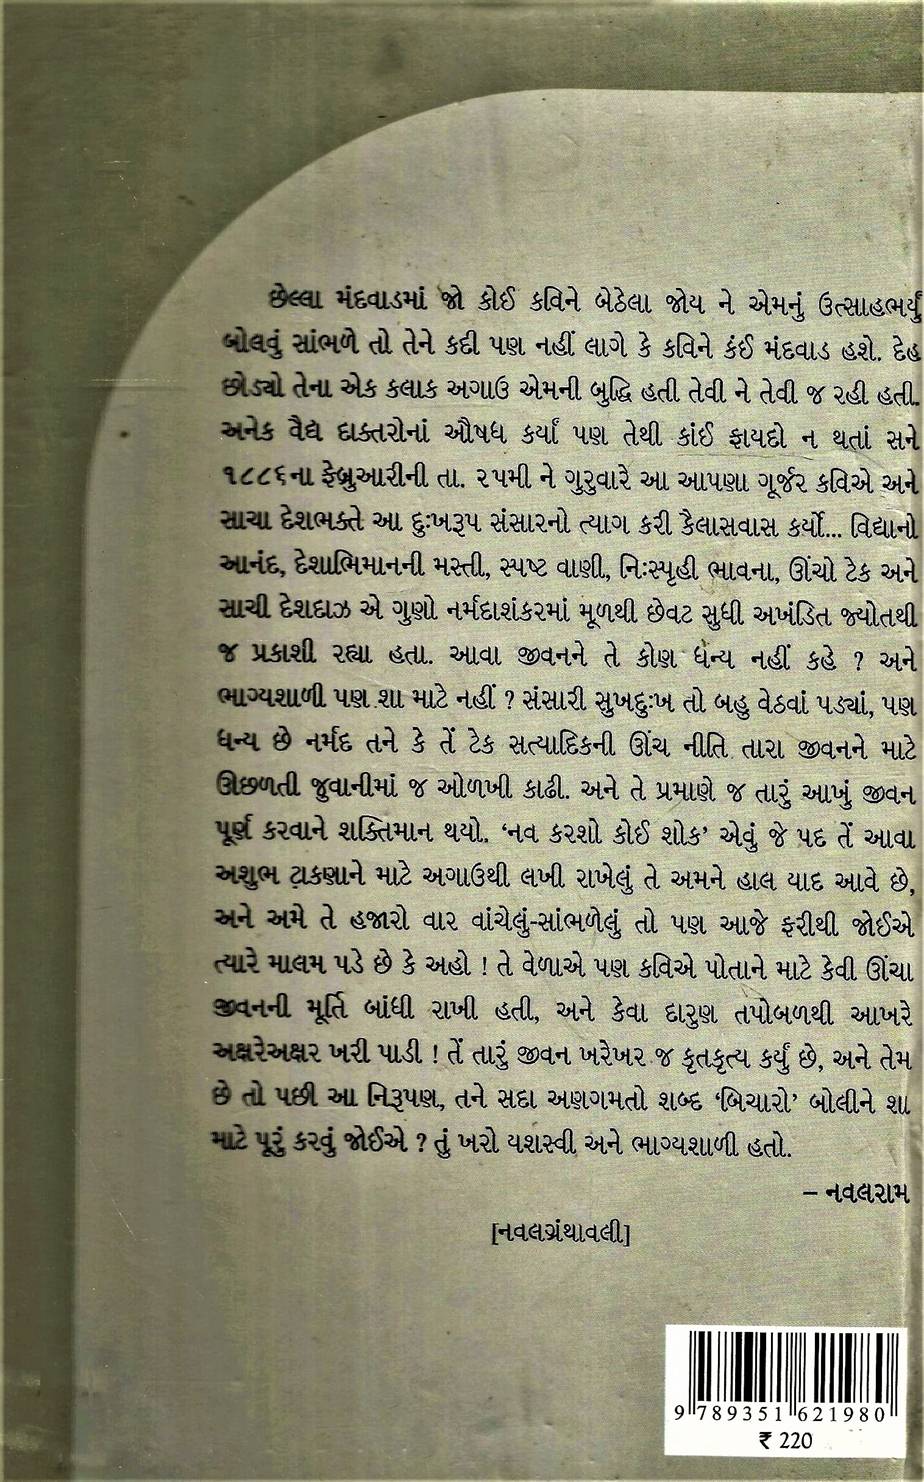 છેલ્લા મંદવાડમાં જો કોઈ કવિને બેઠેલા જોય ને એમનું ઉત્સાહભર્યું
બોલવું સાંભળે તો તેને કદી પણ નહીં લાગે કે કવિને કંઈ મંદવાડ હશે. દેહ
છોડ્યો તેના એક કલાક અગાઉ એમની બુદ્ધિ હતી તેવી ને તેવી જ રહી હતી.
અનેક વૈદ્ય દાક્તરોનાં ઔષધ કર્યાં પણ તેથી કાંઈ ફાયદો ન થતાં સને
૧૮૮૬ના ફેબ્રુઆરીની તા. ૨૫મી ને ગુરુવારે આ આપણા ગૂર્જર કવિએ અને
સાચા દેશભક્તે આ દુઃખરૂપ સંસારનો ત્યાગ કરી કૈલાસવાસ કર્યો... વિદ્યાનો
આનંદ, દેશાભિમાનની મસ્તી, સ્પષ્ટ વાણી, નિઃસ્પૃહી ભાવના, ઊંચો ટેક અને
સાચી દેશદાઝ એ ગુણો નર્મદાશંકરમાં મૂળથી છેવટ સુધી અખંડિત જ્યોતથી
જ પ્રકાશી રહ્યા હતા. આવા જીવનને તે કોણ ધન્ય નહીં કહે ? અને
ભાગ્યશાળી પણ શા માટે નહીં ? સંસારી સુખદુઃખ તો બહુ વેઠવાં પડ્યાં, પણ
ધન્ય છે નર્મદ તને કે તેં ટેક સત્યાદિકની ઊંચ નીતિ તારા જીવનને માટે
ઊછળતી જુવાનીમાં જ ઓળખી કાઢી. અને તે પ્રમાણે જ તારું આખું જીવન
પૂર્ણ કરવાને શક્તિમાન થયો. ‘નવ કરશો કોઈ શોક’ એવું જે પદ તેં આવા
અશુભ ટાકણાને માટે અગાઉથી લખી રાખેલું તે અમને હાલ યાદ આવે છે,
અને અમે તે હજારો વાર વાંચેલું-સાંભળેલું તો પણ આજે ફરીથી જોઈએ
ત્યારે માલમ પડે છે કે અહો ! તે વેળાએ પણ કવિએ પોતાને માટે કેવી ઊંચા
જીવનની મૂર્તિ બાંધી રાખી હતી, અને કેવા દારુણ તપોબળથી આખરે
અક્ષરેઅક્ષર ખરી પાડી ! તેં તારું જીવન ખરેખર જ કૃતકૃત્ય કર્યું છે, અને તેમ
છે તો પછી આ નિરૂપણ, તને સદા અણગમતો શબ્દ ‘બિચારો’ બોલીને શા
માટે પૂરું કરવું જોઈએ ? તું ખરો યશસ્વી અને ભાગ્યશાળી હતો.
– નવલરામ
[નવલગ્રંથાવલી]
9 789351 621980
₹ 220